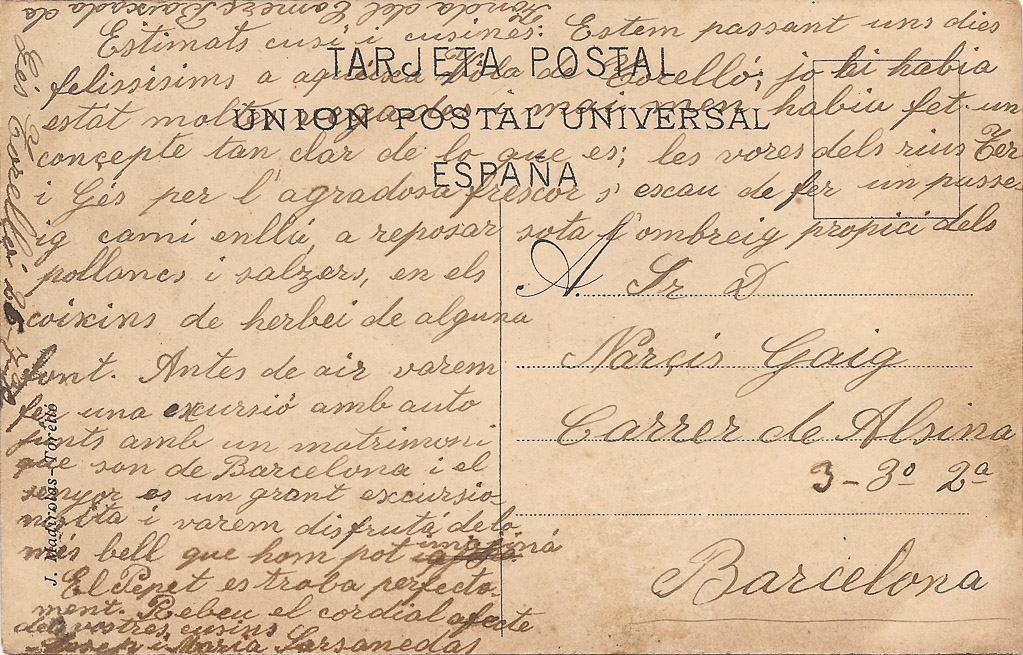 Fonda del Comerç, Baixada de
Les
Torelló 25
TARJETA POSTAL
UNION POSTAL UNIVERSAL
ESPAÑA
Estimats cusí i cusines: Estem passant uns dies
felissisims a aquesta Vila de Torelló; jo hi habia
estat moltes vegades i mai men habiu fet un
conçepte tan clar de lo que es; les vores dels rius Ter
i Gés per l'agradosa frescor s'escau de fer un passe-
ig cami enllú, a reposar sota l'ombreig propici dels
pollancs i salzers, en els
coixins de herbei de alguna
font. Antes de air varem
fer una excursió amb auto
junts amb un matrimoni
que son de Barcelona i el
senyor es un grant excursio
nista i varem disfrutá de lo
més bell que hom pot imaginá
El Pepet es troba perfecta-
ment. Rebeu el cordial afecte
dels vostres cusins
Josep i Maria Sarsanedas
A. Sr D
Narçis Gaig
Carrer de Alsina
3-3º 2ª
Barcelona
J. Madirolas-Torelló